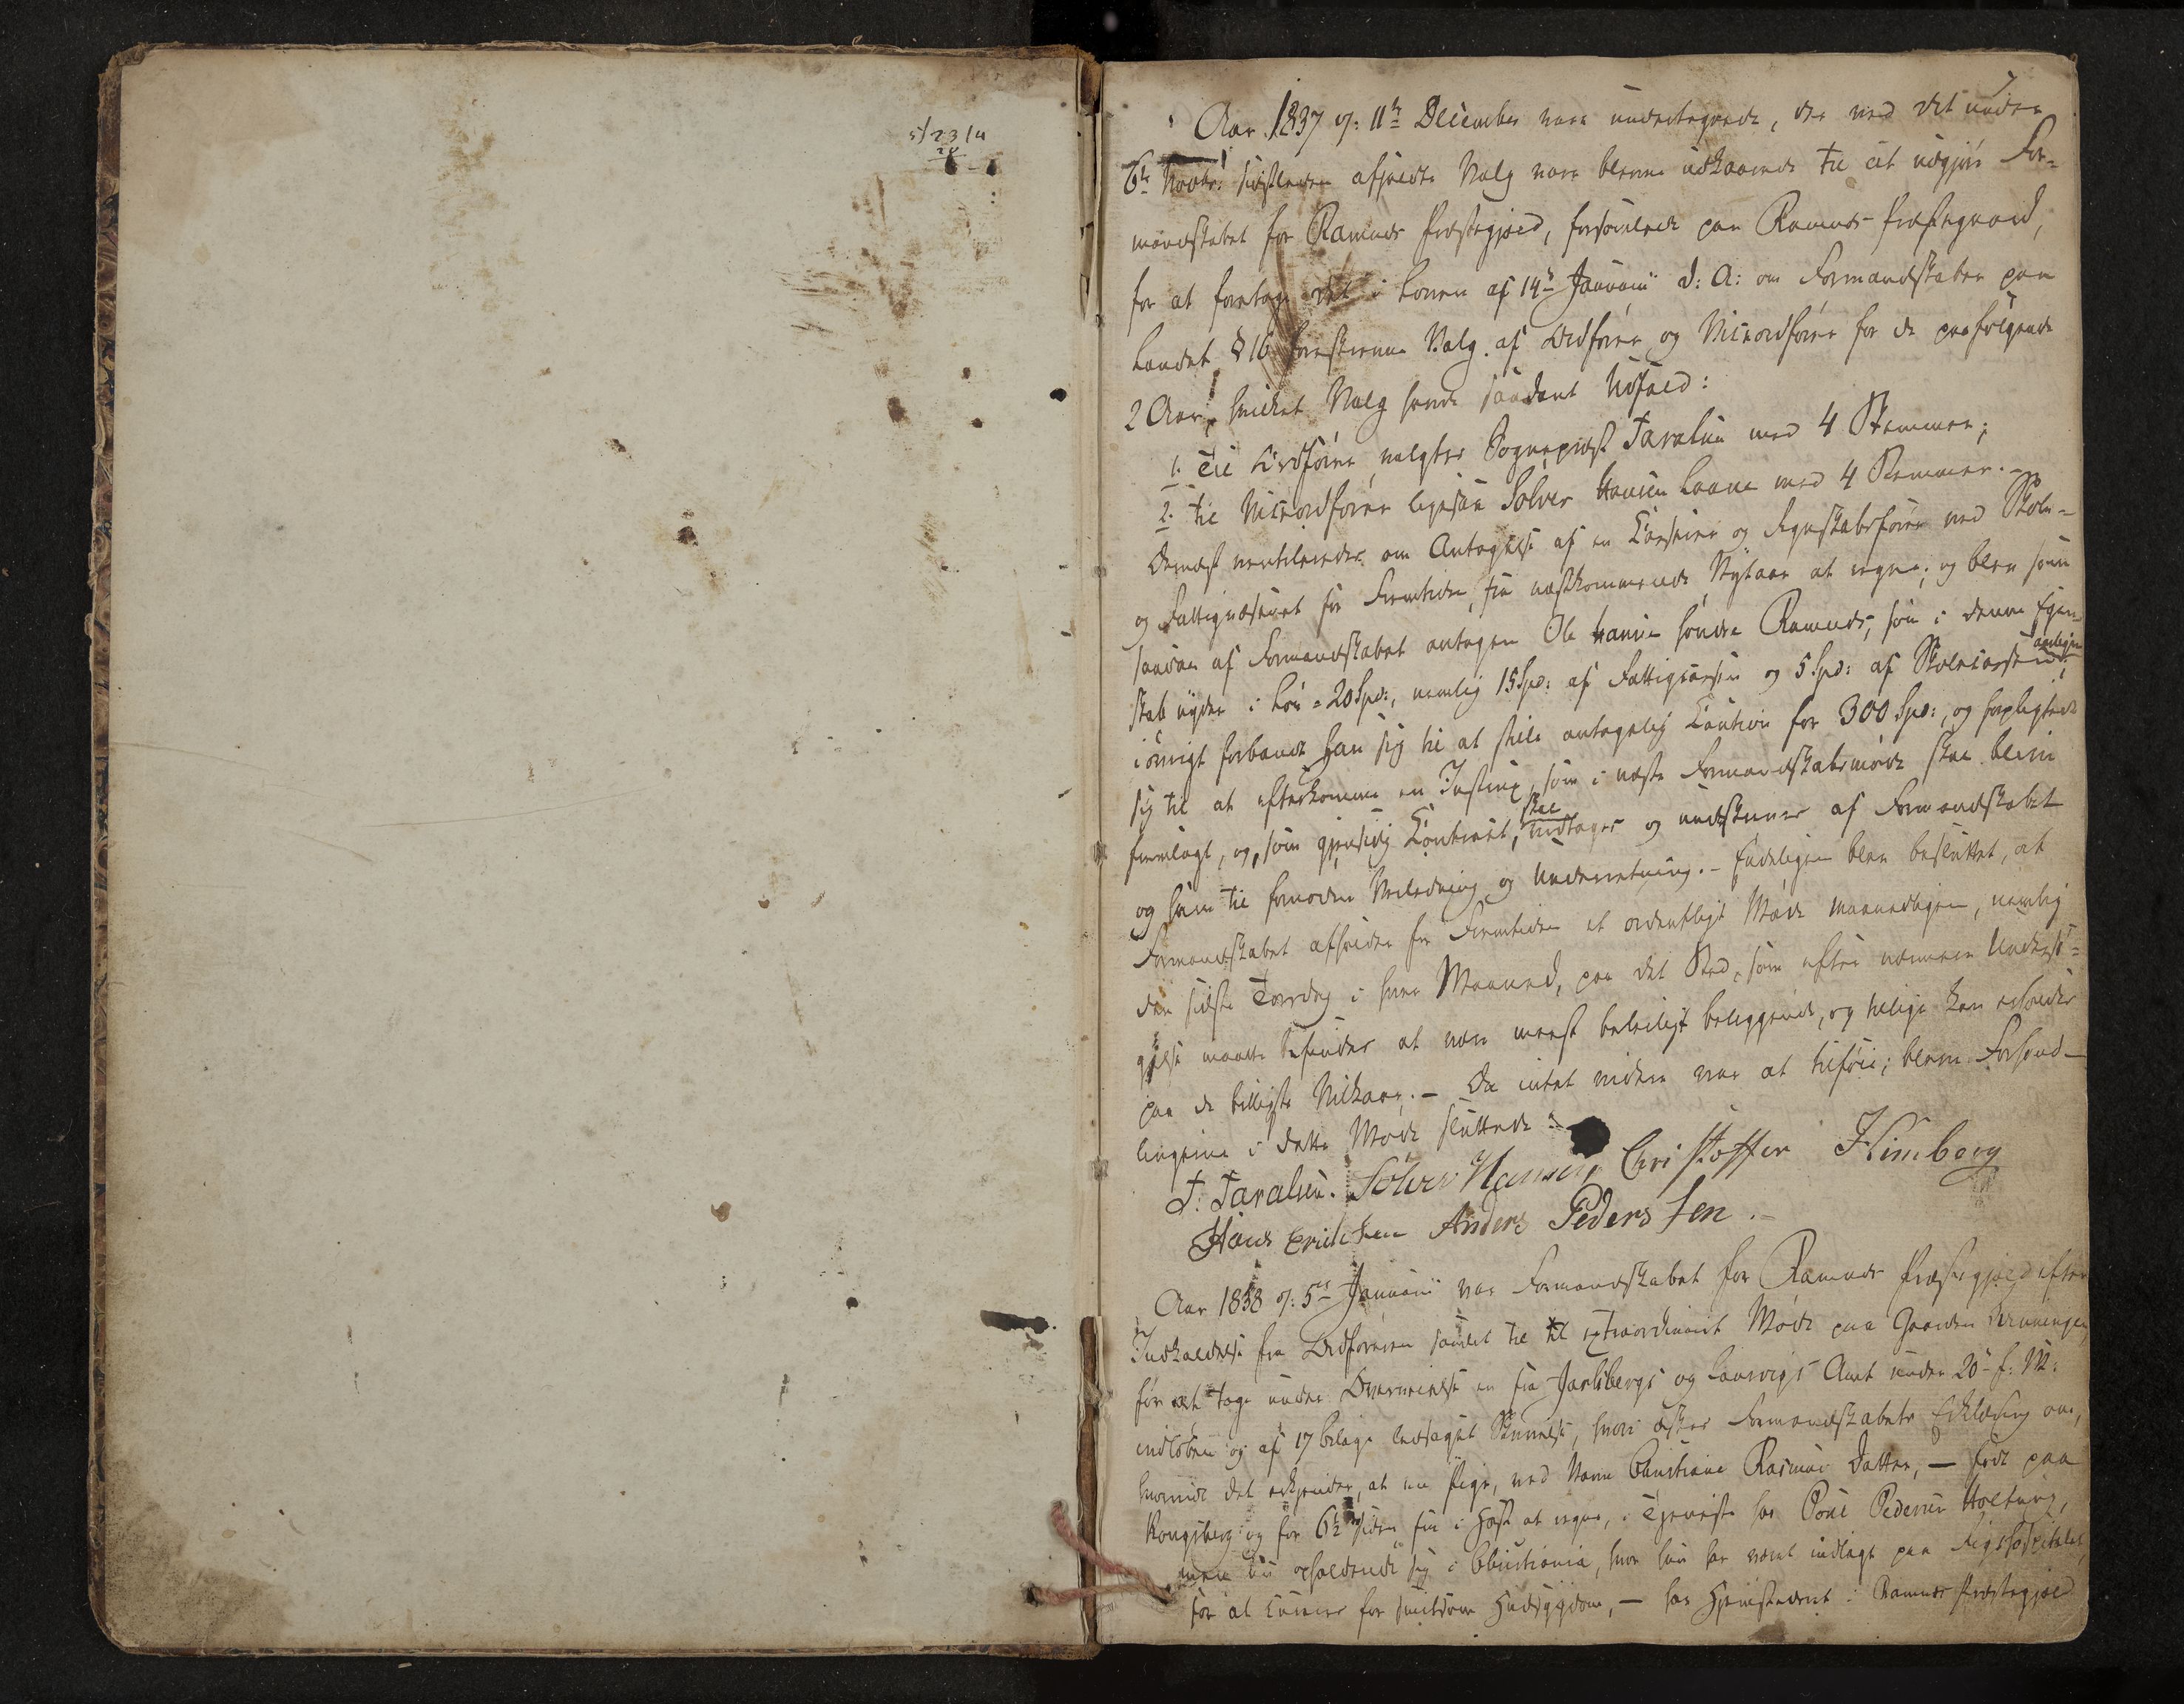 5/23/4
20
Aar 1837 d: 11te December vare undertegnede, der ved det under
6te Novbr: sidstleden afholdte Valg vare blevne udkaarede til at udgjøre For-
mandskabet for Ramnæs Præstegjeld, forsamlede paa Ramnæs Præstegaard,
for at foretage det i Loven af 14de Januarii d: A: om Formandskaber paa
Landet § 16 foreskrevne Valg af Ordfører og Viceordfører for de paafølgende
2 Aar, hvilket Valg havde saadant Udfald:
1. Til Ordfører valgtes Sognepræst Taralsen med 4 Stemmer;
2. til Viceordfører ligesaa Sølver Hansen Laane med 4 Stemmer. -
Dernæst ventileredes om Antagelse af en Casserer og Regnskabsfører ved Skole-
og Fattigvæsenet for Fremtiden, fra næstkommende Nytaar at regne; og blev som
saadan af Formandskabet antagen Ole Hansen søndre Ramnæs, som i denne Egen-
skab nyder i Løn = 20 Spd:, nemlig 15 Spd: af Fattigcassen og 5 Spd: af Skolecassen aarligen;
iøvrigt forbandt han sig til at stille antagelig Caution for 300 Spd:, og forpligtede
sig til at efterkomme en Instrux, som i næste Formandskabsmøde skal blive
fremlagt, og, som gjensidig Contract, skal vedtages og underskrives af Formandskabet
og ham til fornøden Veiledning og Underretning. - Endeligen blev besluttet, at
Formandskabet afholder for Fremtiden et ordentligt Møde maanedligen, nemlig
den sidste Torsdag i hver Maaned, paa det Sted, som efter nærmere Undersø-
gelse maatte befindes at være meest beleiligt beliggende, og tillige kan erholdes
paa de billigste Vilkaar. - Da intet videre var at tilføie, bleve Forhand-
lingerne i dette Møde sluttede.
T: Taralsen. Sølver Hansen Christoffer Klineberg
Hans Erichsen Anders Pedersen. -
Aar 1838 d: 5te Januarii var Formandskabet for Ramnæs Præstegjeld efter
Indkaldelse fra Ordføreren samlet til et extraordinairt Møde paa Gaarden
for at tage under Overveielse en fra Jarlsbergs og Laurvigs Amt under 20de f: M:
indløben og af 17 Bilage ledsaget Skrivelse, hvori æskes Formandskabets Erklæring om,
hvorvidt det erkjender, at en Pige, ved Navn Christiane Rasmus Datter, - født paa
Kongsberg og for 6½ Aar siden fra i Høst at regne, i Tjeneste hos Poul Pedersen
men nu opholdende sig i Christiania, hvor hun har været indlagt paa Rigshospitalet
for at cureres for smitsom Hudsygdom, - har Hjemstavnsret i Ramnæs Præstegjeld